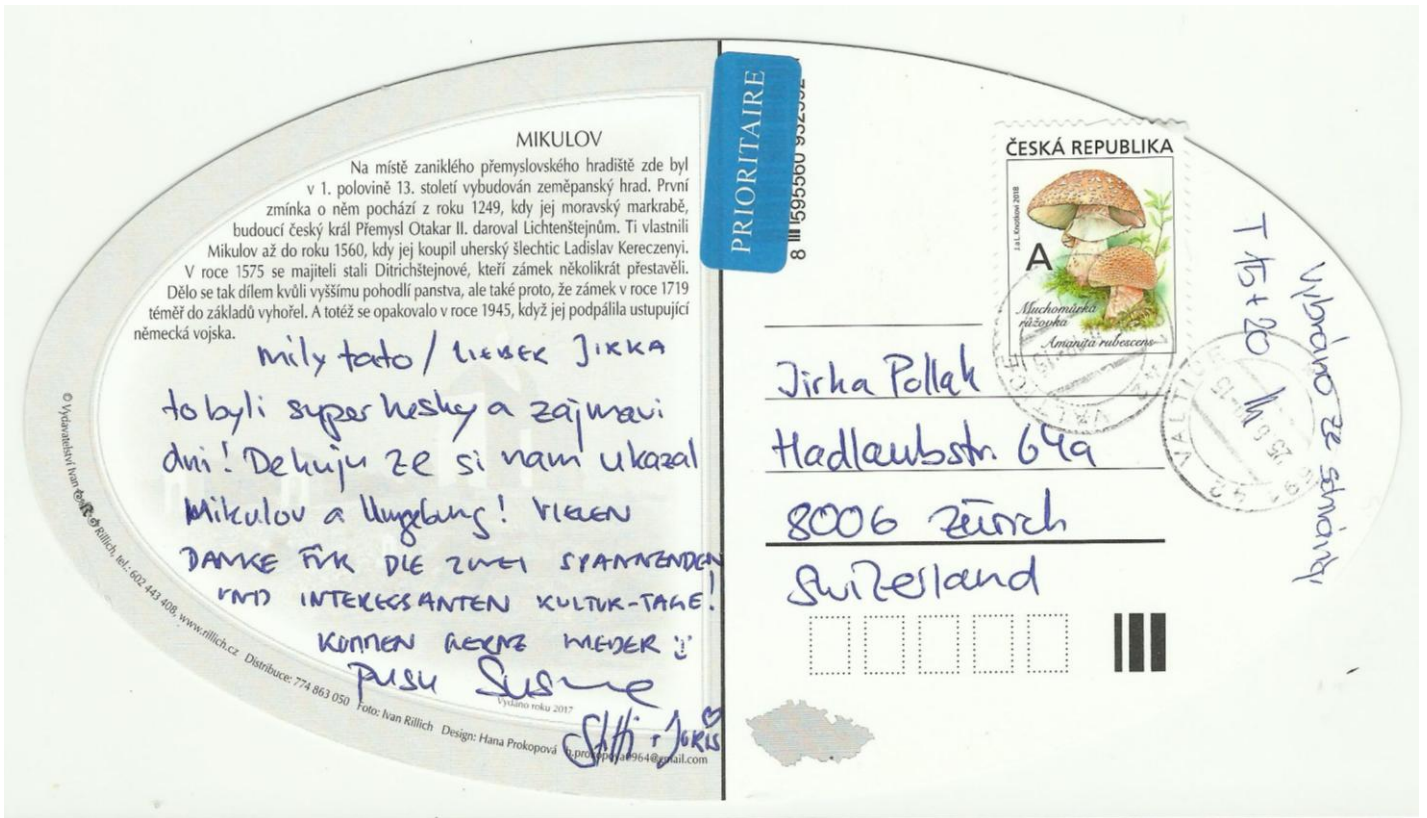 MIKULOV
Na místě zaniklého přemyslovského hradiště zde byl
v 1. polovině 13. století vybudován zeměpanský hrad. První
zmínka o něm pochází z roku 1249, kdy jej moravský markrabě,
budoucí český král Přemysl Otakar II. daroval Lichtenštejnům. Ti vlastnili
Mikulov až do roku 1560, kdy jej koupil uherský šlechtic Ladislav Kereczenyi.
V roce 1575 se majiteli stali Ditrichštejnové, kteří zámek několikrát přestavěli.
Dělo se tak dílem kvůli vyššímu pohodlí panstva, ale také proto, že zámek v roce 1719
téměř do základů vyhořel. A totéž se opakovalo v roce 1945, když jej podpálila ustupující
německá vojska.
mily tato / LIEBER JIRKA
to byli super hesky a zajmavi
dni! Dekuju ze si nam ukazal
Mikulov a Umgebung! VIELEN
DANKE FÜR DIE ZWEI SPANNENDEN
UND INTERESSANTEN KULTUR-TAGE!
KOMMEN GERNE WIEDER
pusu
Vydáno roku 2017
+ JORIS
© Vydavatelství Ivan Rillich, tel.: 602 443 408, www.rillich.cz Distribuce: 774 863 050 Foto: Ivan Rillich Design: Hana Prokopová h.prokopova0964@gmail.com
PRIORITAIRE
8 595560
ČESKÁ REPUBLIKA
J. a L. Knotkovi 2018
A
Muchomůrka
růžovka
Amanita rubescens
VALTICE
691 42 VALTICE
25.6.
Jirka Pollak
Hadlaubstr. 64a
8006 Zürich
Switzerland
T 15+20
Vybráno ze schránky